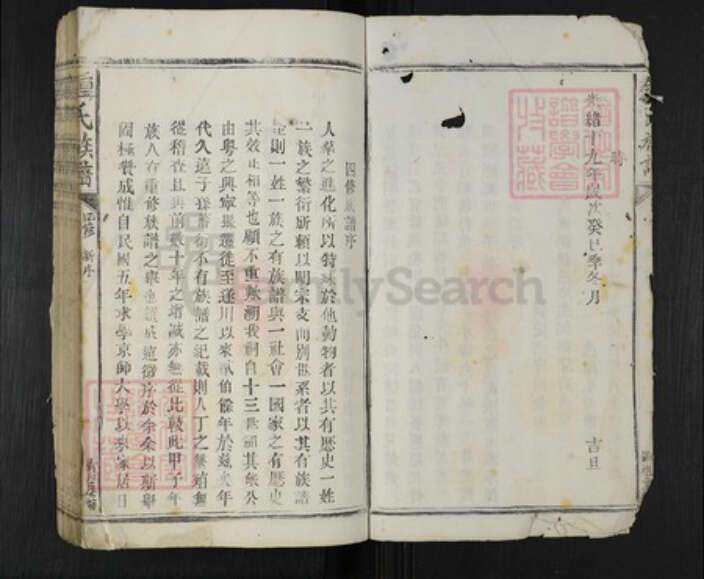 光緒十九年歲次癸巳季冬月
吉旦
四修族譜序
人羣之進化所以特殊於他動物者以其有歷史一姓
一族之繁衍所賴以明宗支而別世系者以其有族譜
則一姓一族之有族譜與一社會一國家之有歷史
其效正相等也顧不重歟溯我祠自十三世祖其然公
由粵之興寧縣遷徙至遂川以來貳伯餘年於茲矣年
代久遠子孫蕃衍不有族譜之紀載則人丁之無從
從稽查且與前數十年之增減亦無從比較此甲子年
族人有重修族譜之舉也譜成遠徵序於余余以斯舉
極贊成惟自民國五年求學京師大學以來家居日
鍾氏族譜
四修
新序
FamilySearch